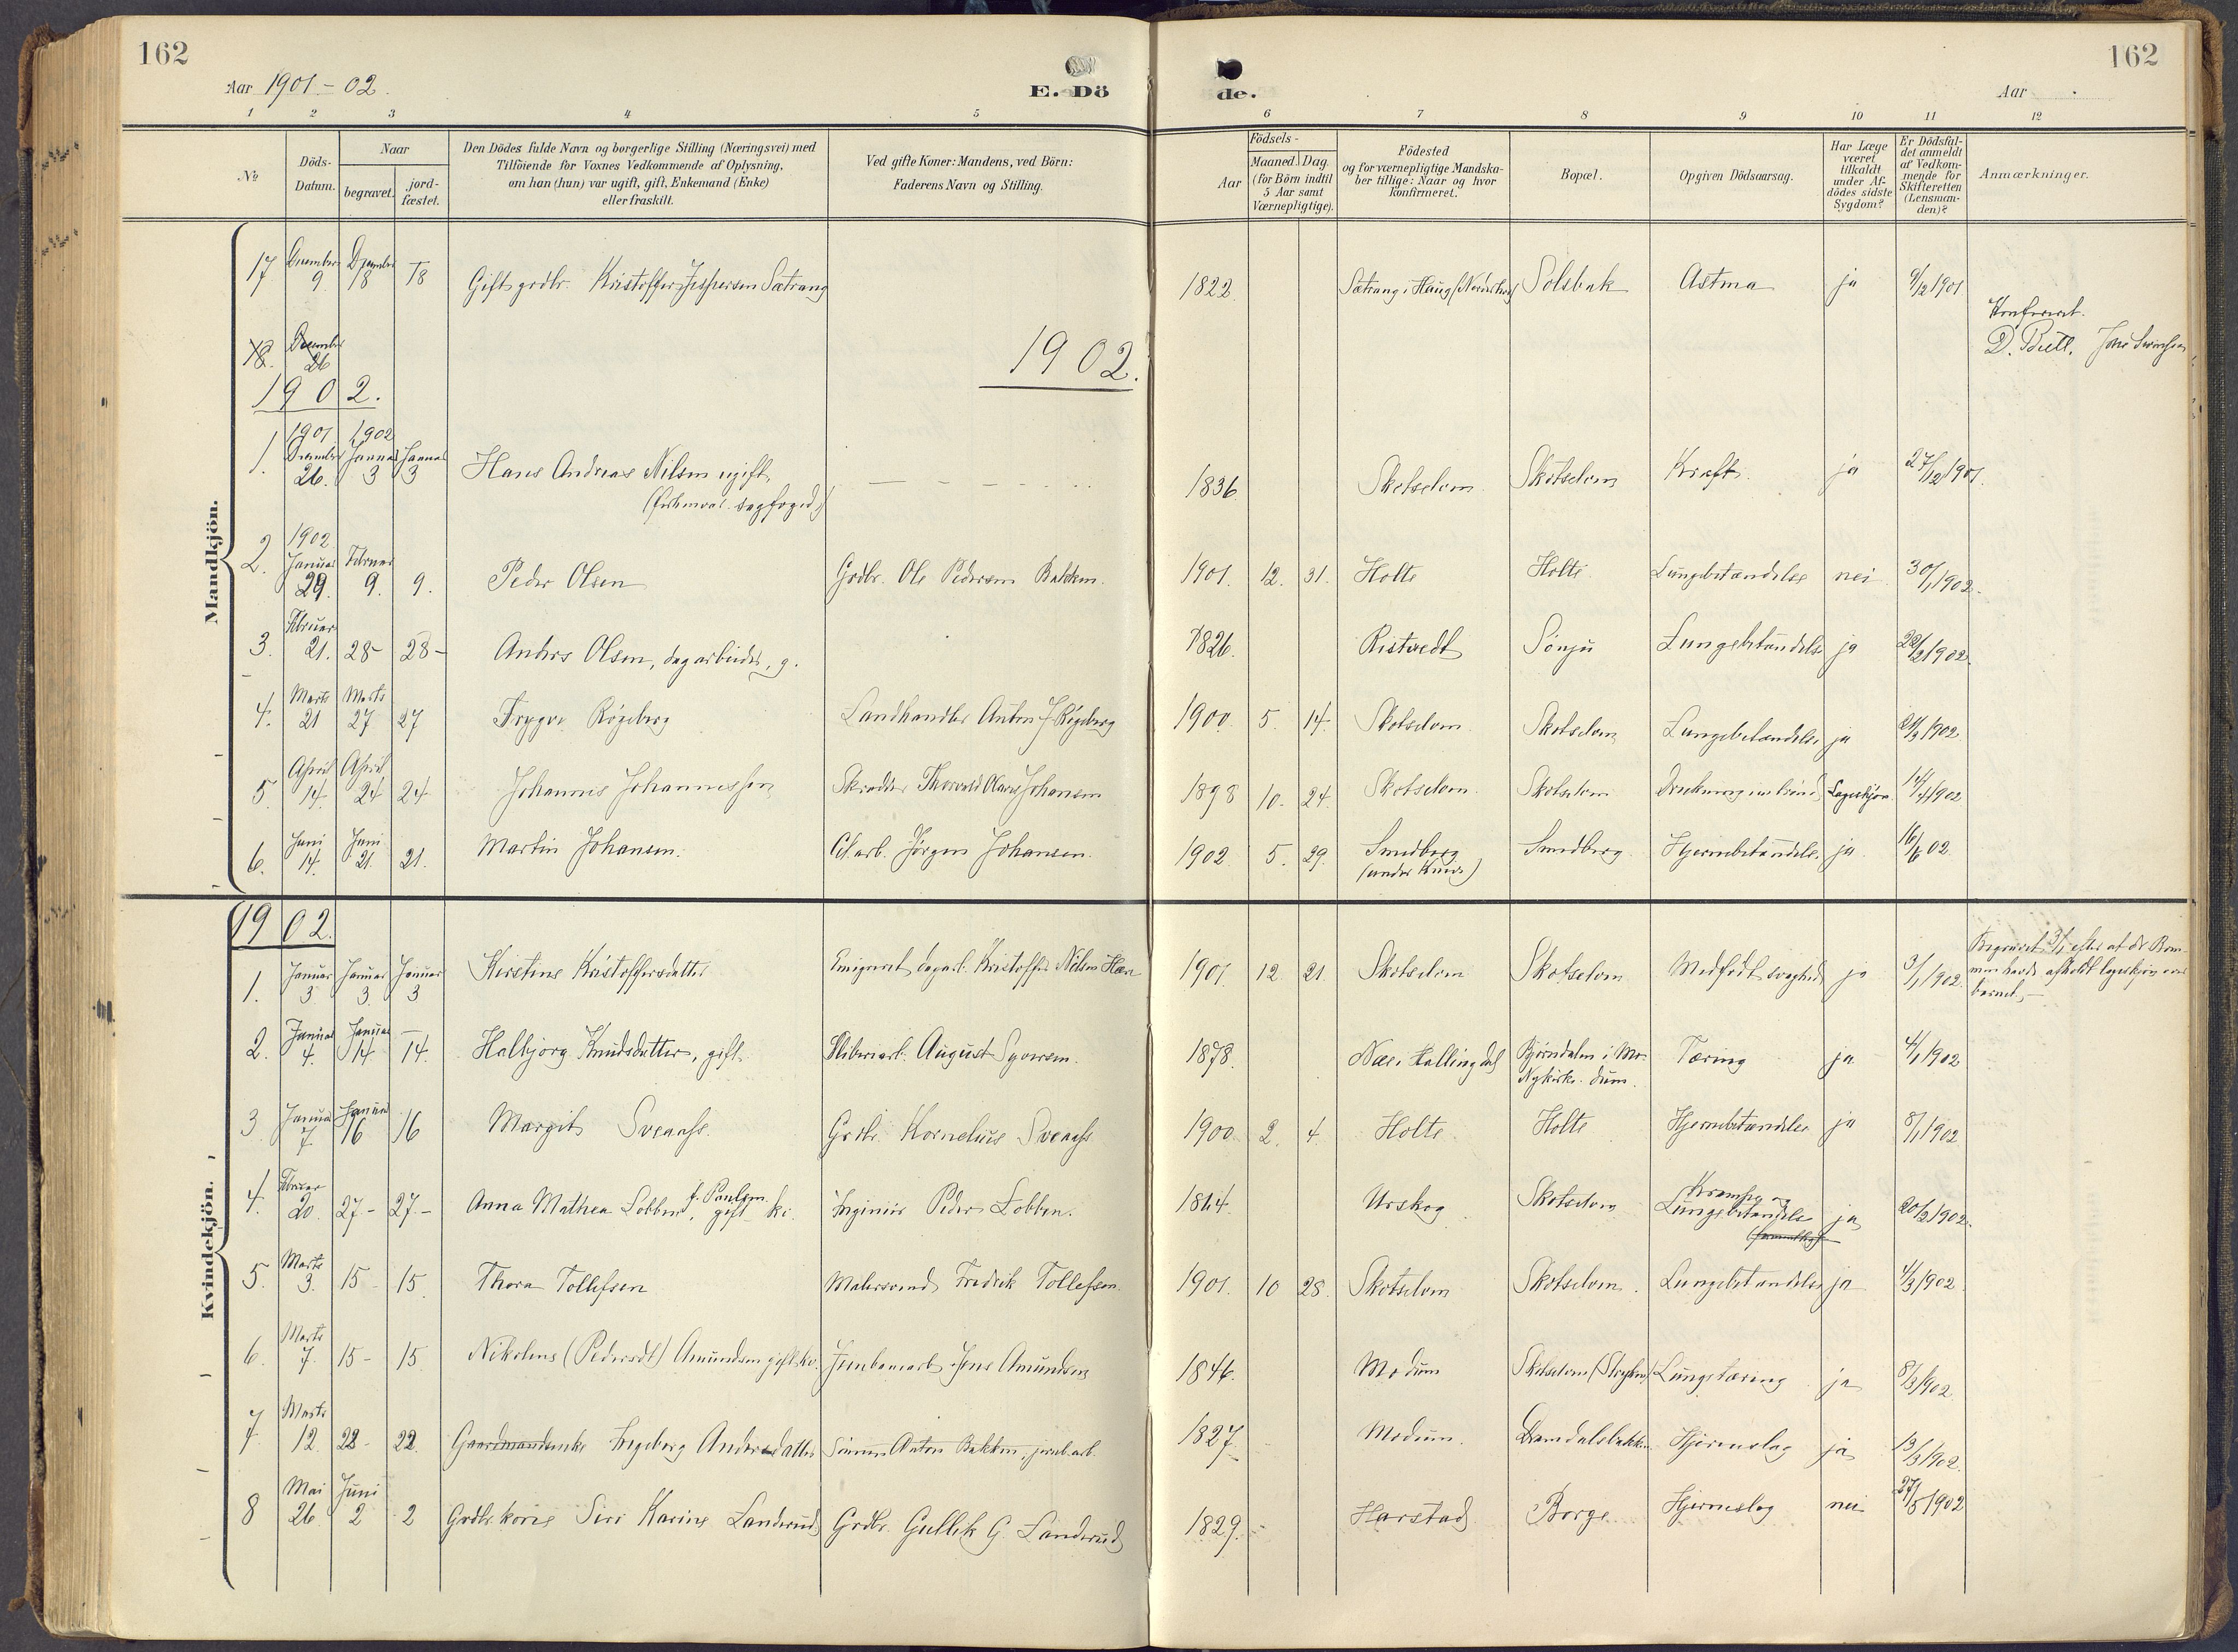 162
162
Aar 1901-02.
E. Dö
de.
Aar
1 2 3 4 5 6 7 8 9 10 11 12
No
Döds-Datum.
Naar
begravet.
jord-fæstet.
Den Dödes fulde Navn og borgerlige Stilling (Næringsvei) med
Tilföiende for Voxnes Vedkommende af Oplysning,
om han (hun) var ugift, gift, Enkemand (Enke)
eller fraskilt.
Ved gifte Koner: Mandens, ved Börn:
Faderens Navn og Stilling.
Födsels-
Aar
Maaned. Dag.
(for Börn indtil
5 Aar samt
Værnepligtige).
Födested
og for værnepligtige Mandska-
ber tillige: Naar og hvor
konfirmeret.
Bopæl.
Opgiven Dödsaarsag.
Har Læge
været
tilkaldt
under Af-
dödes sidste
Sygdom?
Er Dödsfal-
det anmeldt
af Vedkom-
mende for
Skifteretten
(Lensman-
den)?
Anmærkninger.
Mandkjön.
17 December 9 December 18 18 Gift grdbr. Kristoffer Jespersen Sætrang 1822. Sætrang i Haug (Norderhov) Solsbak Astma ja 9/12 1901
Konfereret.
D. Bull.
18. December 26
1902.
1902.
1. 1901 December 26. 1902 Januar 3 Januar 3 Hans Andreas Nilsen ugift, 1836. Skotselven Skotselven Kræft. ja 27/12 1901.
2. 1902 Januar 29. Februar 9. 9. Peder Olsen Grdbr. Ole Pedersen Bakken. 1901. 12. 31. Holte Holte Lungebetændelse nei 30/1 1902.
3. Februar 21. 28- 28- Anders Olsen, dagarbeider, g. 1826. Ristvedt Sönju Lungebetændelse ja 22/2 1902.
4. Marts 21 Marts 27 27 Trygve Røgeberg Landhandler Anton J. Røgeberg 1900. 5. 14. Skotselven Skotselven Lungebetændelse ja 21/3 1902.
5. April 14. April 24 24 Johannes Johannessen Skrædder Johansen 1898 10. 24. Skotselven Skotselven Drukning 14/4 1902
6. Juni 14. Juni 21. 21. Martin Johansen. Cel.arb. Jørgen Johansen. 1902. 5. 29. Smedberg Smedberg Hjernebetændelse ja 16/6 02.
Kvindekjön.
1902.
1. Januar 3 Januar 3. Januar 3 Kirstine Kristoffersdatter Emigreret dagarb. Kristoffer Nilsen 1901. 12. 21. Skotselven Skotselven Medfødt svaghed ja 3/1 1902. Begravet 3/1 efter at dr Rom-
men havde afholdt ligskjøn over
barnet.-
2. Januar 4. Januar 14 14. Halbjorg Knudsdatter, gift. Sliberiarb. August Syversen. 1878. Næs i Hallingdal Bjørndalen i Mo-
Nykirke. dum. Tæring ja 4/1 1902
3 Januar 7. Januar 16 16 Margit Svenaas. Grdbr. Kornelius Svenaas 1900 2. 4. Holte Holte Hjernebetændelse ja 8/1 1902
4. Februar 20. 27- 27.- Anna Mathea Lobben, f. Paulsen. gift kv. Ingeniør Peder Lobben. Urskog Skotselven Krampe og
Lungebetændelse ja 20/2 1902.
5. Marts 3. 15- 15. Thora Tollefsen Malersvend Fredrik Tollefsen. 1901. 10 28. Skotselven Skotselven. Lungebetændelse ja 4/3 1902.
6. Marts 7. 15- 15 Nikoline (Pedersdt) Amundsen gift kv. Jernbanearb. Jens Amundsen 1846. Modum Skotselven Lungetæring ja 8/3 1902.
7 Marts 12. 22- 22. Gaardmandsenke Ingeborg Andersdatter Sönnen Anton Bakken, jernb.arb. 1827. Modum. Hjerneslag ja 13/3 1902.
8 Mai 26 Juni 2 2 Grdbr.kone Siri Karine Landerud Grdbr. Gullik G. Landerud 1829. Harstad Borge Hjerneslag nei 27/5 1902